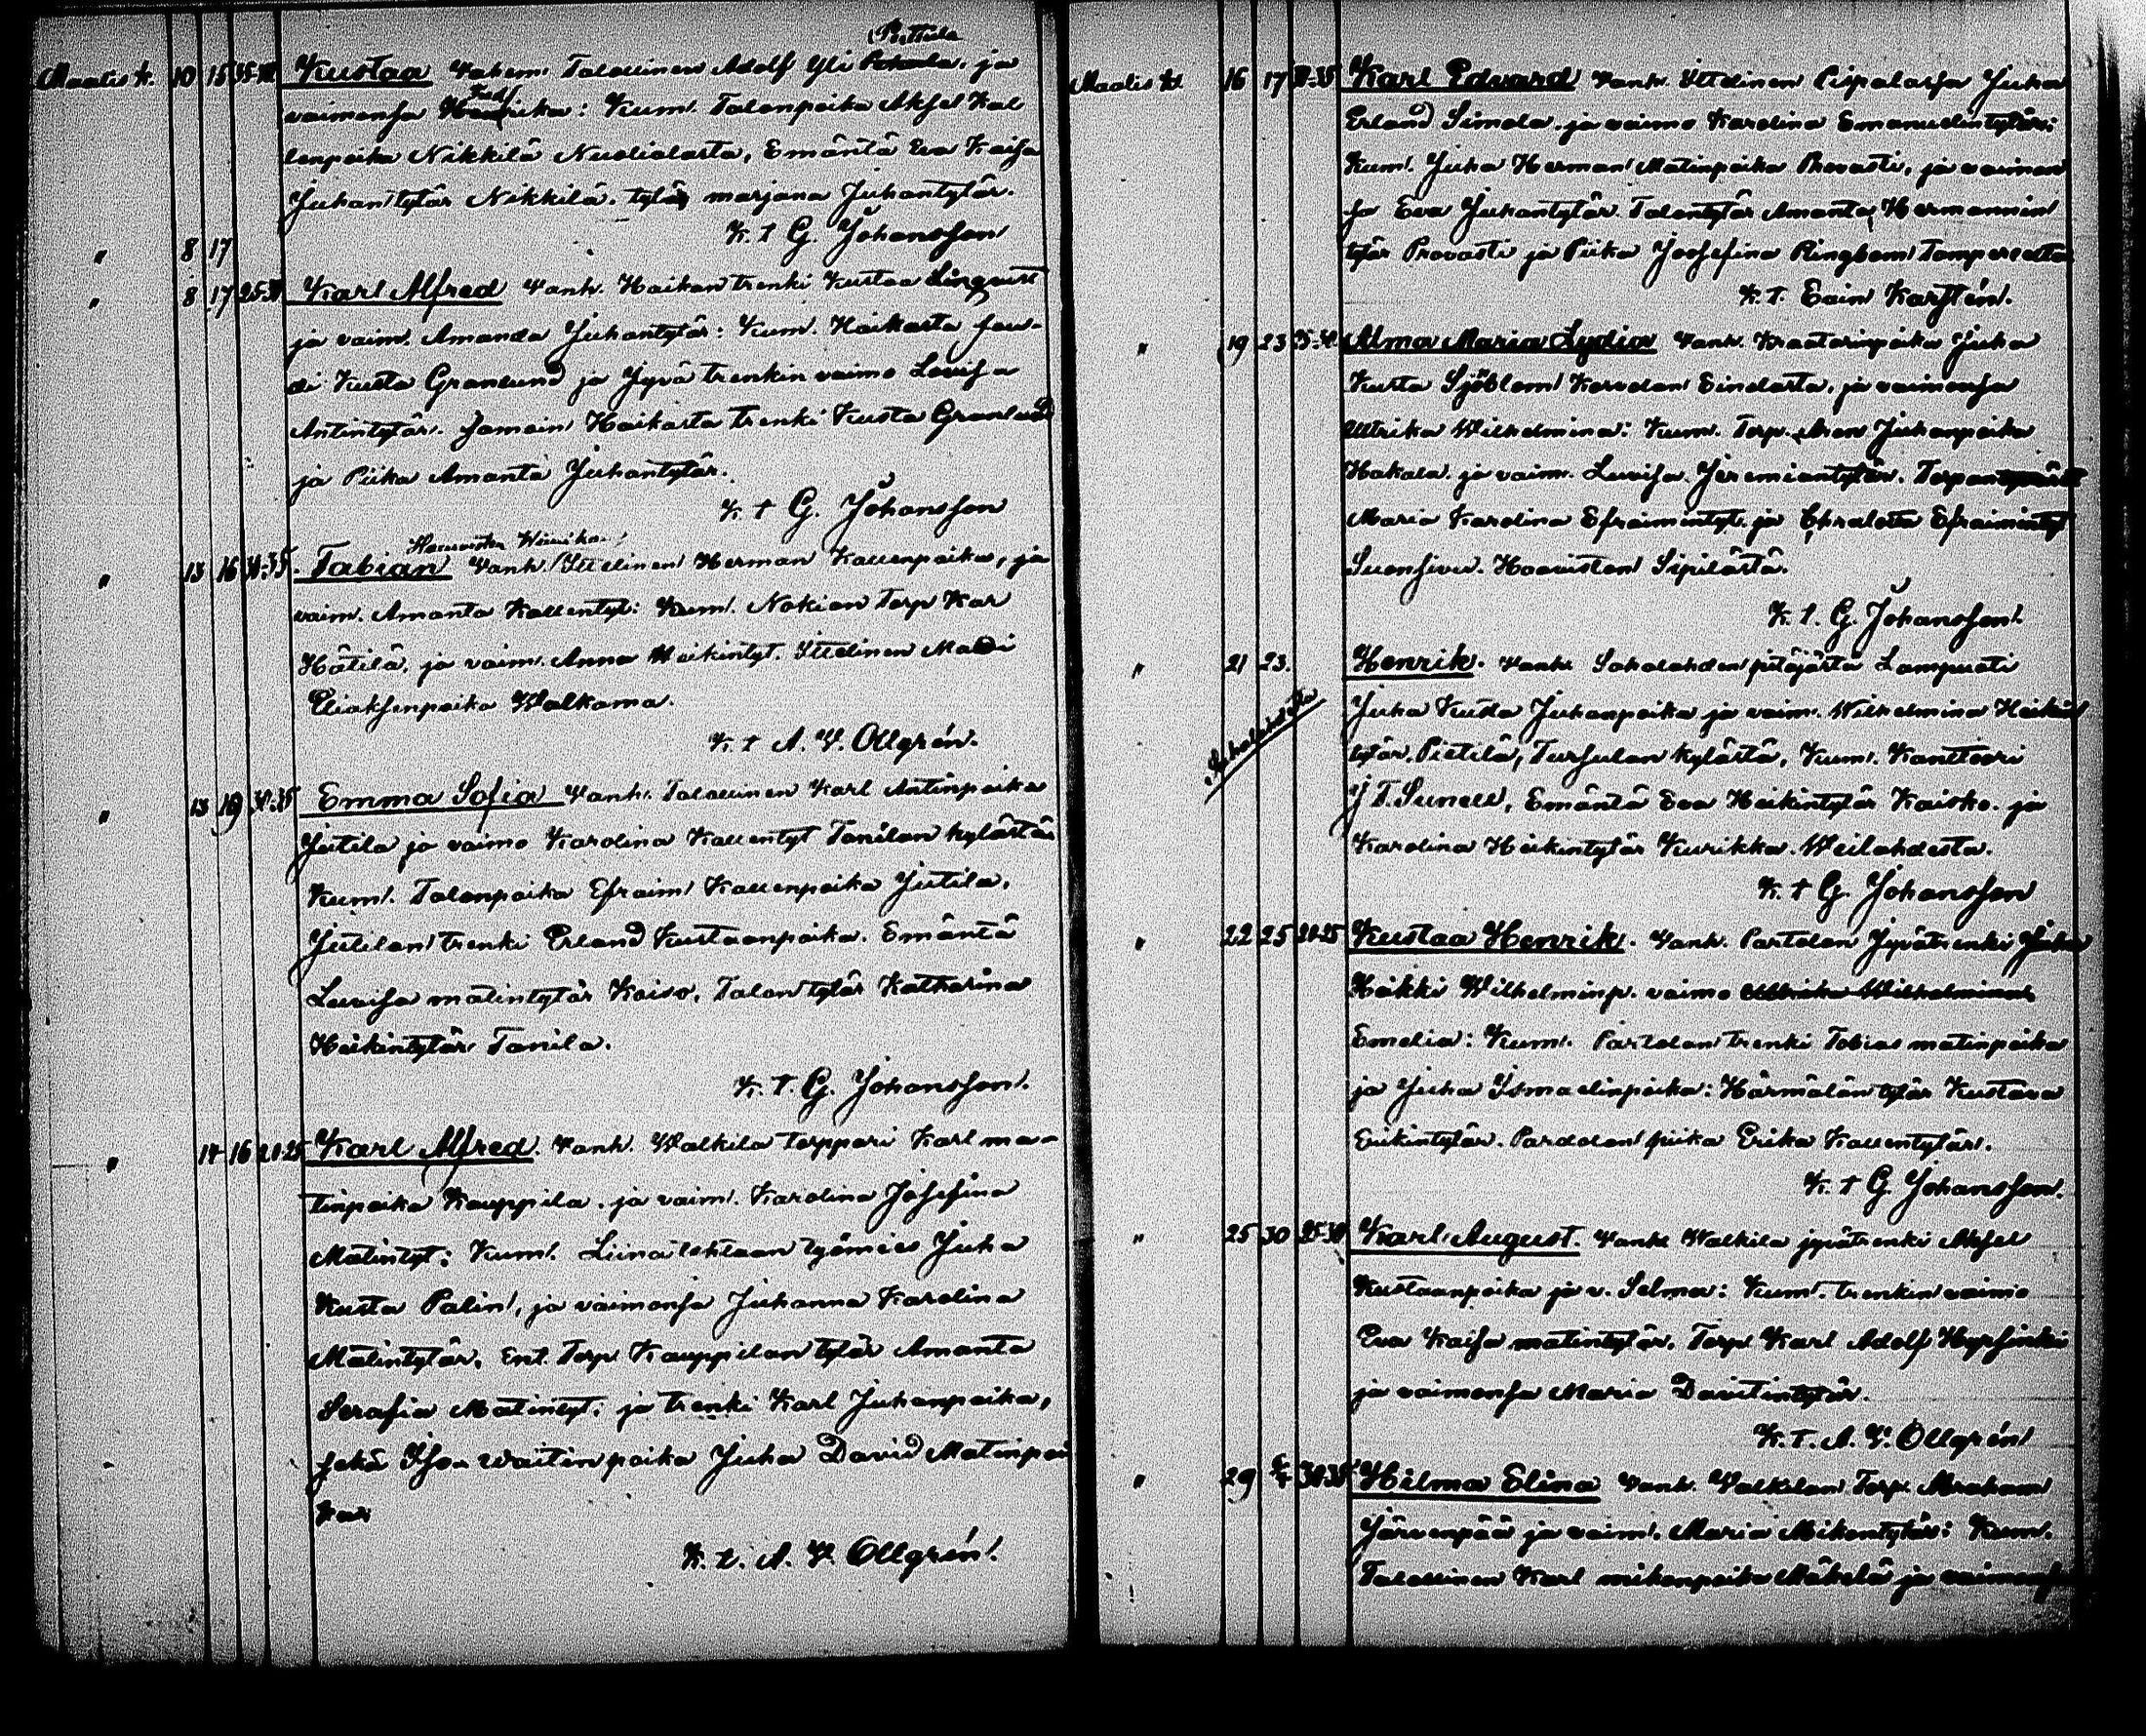 Maalis k. 10 15 35-40 Kustaa Vahem. Talollinen Adolf Yli Pehula, ja
Perttula
vaimonsa Hendrika: Kum. Talonpoika Aksel Kal
Fred
lenpoika Nikkilä Nuolialasta, Emäntä Eva Kaisa
Juhantytär Nikkilä. tytär marjana Juhantytär.
K. t G. Johansson
" 8 17
" 8 17 25-30 Karl Alfred Vanh. Haikan trenki Kustaa Linqvist
ja vaim. Amanda Juhantytär: Kum. Haikasta fou-
di Kusta Granlund ja Jyvä trenkin vaimo Lovisa
Antintytär. samoin Haikasta trenki Kusta Granlund
ja Piika Amanta Juhantytär.
K. t G. Johansson
Haaviston
" 13 16 30-35. Fabian Vanh. Itellinen Herman Kallenpoika, ja
vaim. Amanta Kallentyt: Kum. Nokian Torp Kar
Hätilä, ja vaim. Anna Heikintyt. Itellinen Matti
Eliaksenpoika Walkama.
K. t A. V. Ollgrén.
" 13 19 30-35 Emma Sofia Vanh. Talollinen Karl Antinpoika
Jutila ja vaimo Karolina Kallentyt Tanilan kylästä
Kum. Talonpoika Efraim Kallenpoika Jutila,
Jutilan trenki Erland Kustaanpoika. Emäntä
Lovisa matintytär Kaiso, Talon tytär Katharina
Heikintytär Tanila.
K. t. G. Johansson.
" 14 16 20-25 Karl Alfred. Vanh. Walkila torppari Karl ma-
tinpoika Kauppila. ja vaim. Karolina Josefina
Matintyt: Kum. Liinatehtaan työmies Juha
Kusta Palin, ja vaimonsa Juhanna Karolina
Matintytär, Ent. Torp Kauppilan tytär Amanta
Serafia Matintyt. ja trenki Karl Juhanpoika,
sekä Iso waitin poika Juha David Matinpoi
ka
K. t. A. V. Ollgrén.
Maalis k. 16 17 30-35 Karl Edvard Vanh. Itellinen Pispalassa Juha
Erland Simola. ja vaimo Karolina Emanuelintytär:
Kum. Juha Herman Matinpoika Provasti, ja vaimon
sa Eva Juhantytär. Talontytär Amanta Hermannin
tytär Provasti ja Piika Josefina Ringbom Tampereelta
K. t. Eain Karstén.
" 19 23 25-30 Alma Maria Lydia Vanh. Kraatarinpoika Juha
Kusta Sjöblom Korvolan Eindasta, ja vaimonsa
Ulrika Wilhelmina: Kum. Torp. Juhanpoika
Hakala. ja vaim. Lovisa Jeremiantytär. Torpan
Maria Karolina Efraimintyt. ja Charlotta Efraimintyt
Suensivu. Haaviston Sipilästä.
K. t. G. Johansson.
" 21 23. Henrik. Vanh. Sahalahden pitäjästä Lampuoti
Sahalahdelta
Juha Kusta Juhanpoika ja vaim. Wilhelmina Heikin
tytär. Pietilä, Tursulan kylästä, Kum. Kanttoori
J T. Sunell, Emäntä Eva Heikintytär Kaisko. ja
Karolina Heikintytär Kurikka. Weilahdesta.
K. t G. Johansson
" 22 25 20-25 Kustaa Henrik. Vanh. Partolan Jyvätrenki Juha
Heikki Wilhelminp. vaimo Ulrika Wilhelmina
Emelia: Kum. Partolan trenki Tobias matinpoika
ja Juha Ismaelinpoika: Härmälän tytär Kustava
Erikintytär. Partolan piika Erika Kallentytär.
K. t G. Johansson.
" 25 30 25-30 Karl August. Vanh Walkila jyvätrenki Aksel
Kustaanpoika ja v. Selma: Kum. trenkin vaimo
Eva Kaisa matintytär. Torp. Karl Adolf
ja vaimonsa Maria Davitintytär.
K. t. A. V. Ollgrén
" 29 6/4 30-35 Hilma Elina Vanh. Walkilan Torp. Abraham
Järvenpää ja vaim. Maria Mikontytär: Kum.
Talollinen Karl mikonpoika Mäkelä ja vaimonsa